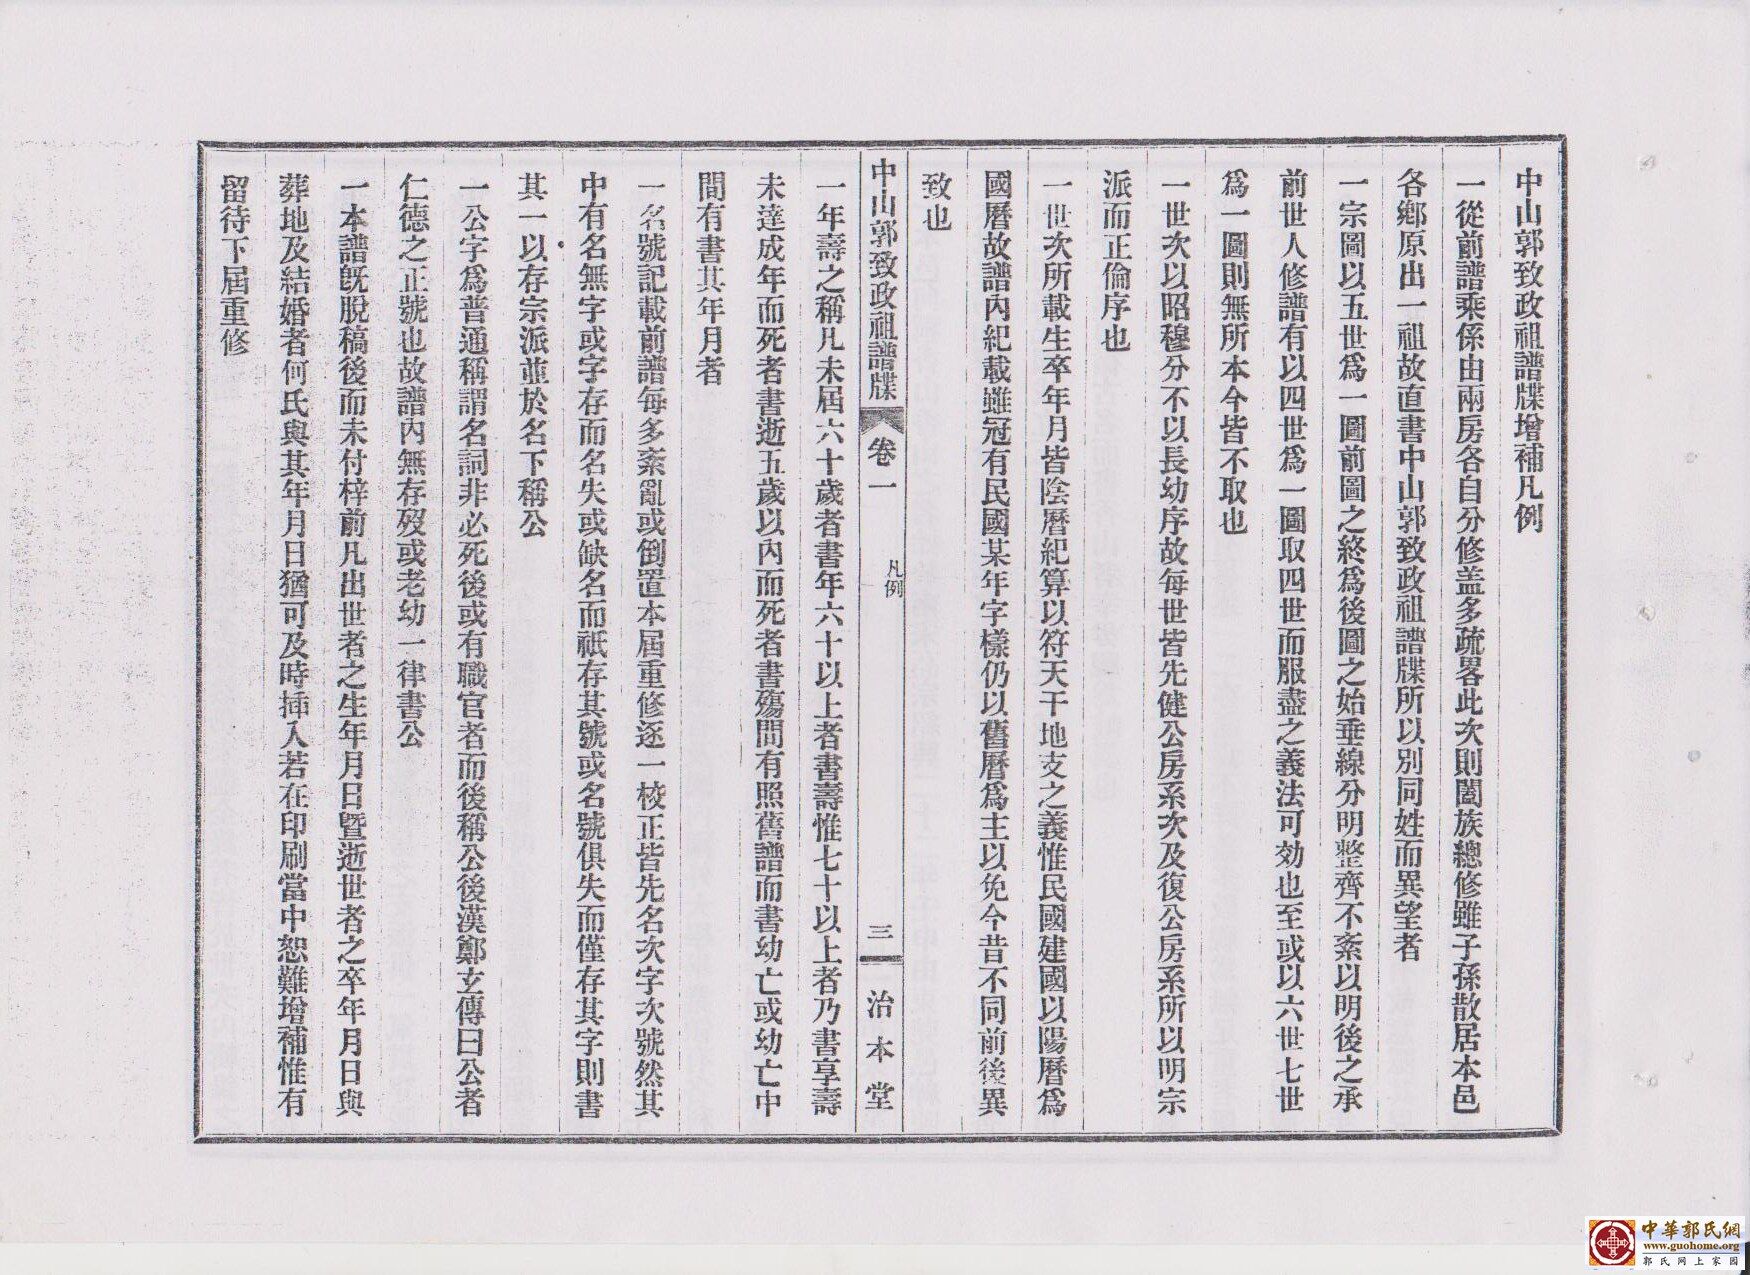 中山郭致政祖譜牒增補凡例
一從前譜乘係由兩房各自分修盖多疏畧此次則闔族總修雖子孫散居本邑
各鄉原出一祖故直書中山郭致政祖譜牒所以別同姓而異望者
一宗圖以五世爲一圖前圖之終爲後圖之始垂線分明整齊不紊以明後之承
前世人修譜有以四世爲一圖取四世而服盡之義法可効也至或以六世七世
爲一圖則無所本今皆不取也
一世次以昭穆分不以長幼序故每世皆先健公房系次及復公房系所以明宗
派而正倫序也
一世次所載生卒年月皆陰曆紀算以符天干地支之義惟民國建國以陽曆爲
國曆故譜內紀載雖冠有民國某年字樣仍以舊曆爲主以免今昔不同前後異
致也
中山郭致政祖譜牒 卷一 凡例 三 治本堂
一年壽之稱凡未屆六十歲者書年六十以上者書壽惟七十以上者乃書享壽
未達成年而死者書逝五歲以內而死者書殤間有照舊譜而書幼亡或幼亡中
間有書其年月者
一名號記載前譜每多紊亂或倒置本屆重修逐一校正皆先名次字次號然其
中有名無字或字存而名失或缺名而祇存其號或名號俱失而僅存其字則書
其一以存宗派並於名下稱公
一公字爲普通稱謂名詞非必死後或有職官者而後稱公後漢鄭玄傳曰公者
仁德之正號也故譜內無存歿或老幼一律書公
一本譜旣脫稿後而未付梓前凡出世者之生年月日曁逝世者之卒年月日與
葬地及結婚者何氏與其年月日猶可及時揷入若在印刷當中恕難增補惟有
留待下屆重修
中華郭氏網
www.guohome.org
郭氏网上家园